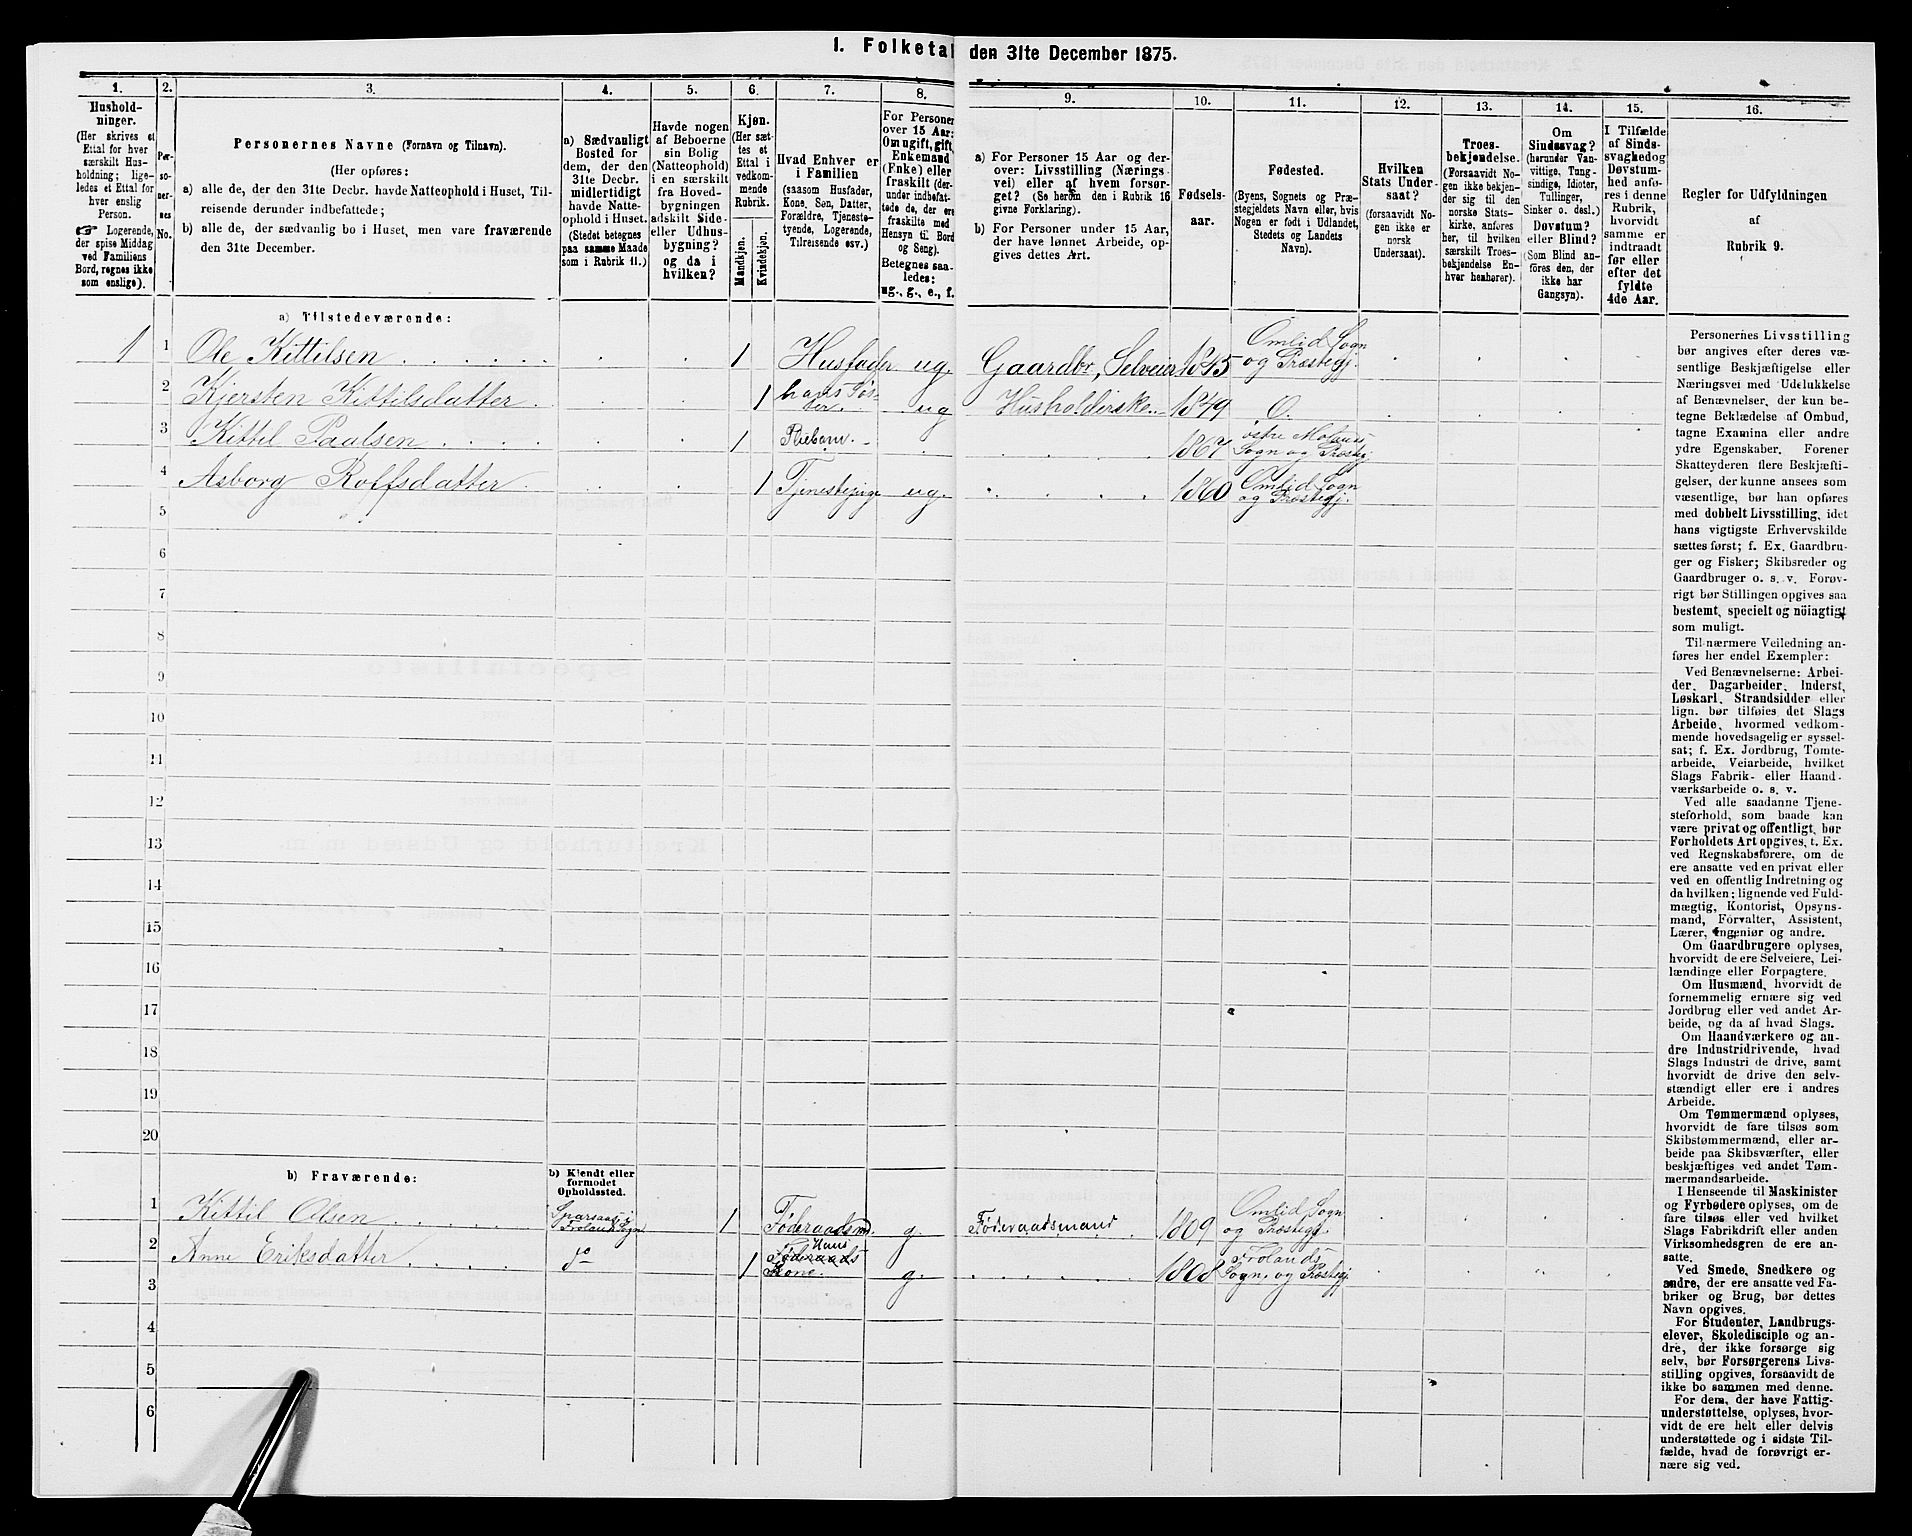 I. Folketal den 31te December 1875.
1.
2.
3.
4.
5.
6.
7.
8.
9.
10.
11.
12.
13.
14.
15.
16.
Hushold-
ninger.
(Her skrives et
Ettal for hver
særskilt Hus-
holdning; lige-
ledes et Ettal for
hver enslig
Person.
☞ Logerende,
der spise Middag
ved Familiens
Bord, regnes ikke
som enslige).
Per-
so-
ner-
nes
No.
Personernes Navne (Fornavn og Tilnavn).
(Her opføres:
a) alle de, der den 31te Decbr. havde Natteophold i Huset, Til-
reisende derunder indbefattede;
b) alle de, der sædvanlig bo i Huset, men vare fraværende
den 31te December.
a) Sædvanligt
Bosted for
dem, der den
31te Decbr.
midlertidigt
havde Natte-
ophold i Huset.
(Stedet betegnes
paa samme Maade
som i Rubrik 11.)
Havde nogen
af Beboerne
sin Bolig
(Natteophold)
i en særskilt
fra Hoved-
bygningen
adskilt Side-
eller Udhus-
bygning?
og da i
hvilken?
Kjøn.
(Her sæt-
tes et
Ettal i
vedkom-
mende
Rubrik.
Mandkjøn.
Kvindekjøn.
Hvad Enhver er
i Familien
(saasom Husfader,
Kone, Søn, Datter,
Forældre, Tjeneste-
tyende, Logerende,
Tilreisende osv.)
For Personer
over 15 Aar:
Om ugift, gift,
Enkemand
(Enke) eller
fraskilt (der-
under indbefat-
tede de, der ere
fraskilte med
Hensyn til Bord
og Seng).
Betegnes saa-
ledes:
ug., g., e., f.
a) For Personer 15 Aar og der-
over: Livsstilling (Nærings-
vei) eller af hvem forsør-
get? (Se herom den i Rubrik 16
givne Forklaring).
b) For Personer under 15 Aar,
der have lønnet Arbeide, op-
gives dettes Art.
Fødsels-
aar.
Fødested.
(Byens, Sognets og Præ-
stegjeldets Navn eller, hvis
Nogen er født i Udlandet,
Stedets og Landets
Navn).
Hvilken
Stats Under-
saat?
(forsaavidt No-
gen ikke er
norsk
Undersaat).
Troes-
bekjendelse.
(Forsaavidt No-
gen ikke bekjen-
der sig til den
norske Stats-
kirke, anføres
her, til hvilken
særskilt Troes-
bekjendelse En-
hver henhører).
Om
Sindssvag?
(herunder Van-
vittige, Tung-
sindige, Idioter,
Tullinger,
Sinker o. desl.)
Døvstum?
eller Blind?
(Som Blind an-
føres den, der
ikke har
Gangsyn).
I Tilfælde
af Sinds-
svaghed og
Døvstum-
hed anfø-
res i denne
Rubrik,
hvorvidt
samme er
indtraadt
før eller
efter det
fyldte
4de Aar.
Regler for Udfyldningen
af
Rubrik 9.
a) Tilstedeværende:
1 1 Ole Kittilsen 1 Husfader ug. Gaardbr, Selveier 1845 Omlid Sogn
og Præstegj.
2 Kjersten Kittilsdatter 1 hans Søs-
ter. ug Husholderske 1849 O.
3 Kittil Paalsen 1 Pleiebarn 1867 østre Molands
Sogn og Præstegj
4 Asborg Rolfsdatter 1 Tjenestepige ug. 1860 Omlid Sogn
og Præstegj.
5
6
7
8
9
10
11
12
13
14
15
16
17
18
19
20
b) Fraværende:
b) Kjendt eller
formodet
Opholdssted.
1 Kittil Olsen
Froland Sogn 1 Føderaadsm. g. Føderaadsmand 1809 Omlid Sogn
og Præstegj.
2 Anne Eriksdatter do 1 Hans
Føderaads
Kone. g. 1808 Frolands
Sogn og Præstegj.
3
4
5
6
Personernes Livsstilling
bør angives efter deres væ-
sentlige Beskjæftigelse eller
Næringsvei med Udelukkelse
af Benævnelser, der kun be-
tegne Beklædelse af Ombud,
tagne Examina eller andre
ydre Egenskaber. Forener
Skatteyderen flere Beskjæfti-
gelser, der kunne ansees som
væsentlige, bør han opføres
med dobbelt Livsstilling, idet
hans vigtigste Erhvervskilde
sættes først; f. Ex. Gaardbru-
ger og Fisker; Skibsreder og
Gaardbruger o. s. v. Forøv-
rigt bør Stillingen opgives saa
bestemt, specielt og nöiagtigt
som muligt.
Til nærmere Veiledning an-
føres her endel Exempler:
Ved Benævnelserne: Arbei-
der, Dagarbeider, Inderst,
Løskarl, Strandsidder eller
lign. bør tilføies det Slags
Arbeide, hvormed vedkom-
mende hovedsagelig er syssel-
sat; f. Ex. Jordbrug, Tomte-
arbeide, Veiarbeide, hvilket
Slags Fabrik- eller Haand-
værksarbeide o. s. v.
Ved alle saadanne Tjene-
steforhold, som baade kan
være privat og offentligt, bør
Forholdets Art opgives, t. Ex.
ved Regnskabsførere, om de
ere ansatte ved en privat eller
ved en offentlig Indretning og
da hvilken; lignende ved Fuld-
mægtig, Kontorist, Opsyns-
mand, Forvalter, Assistent,
Lærer, Ingeniør og andre.
Om Gaardbrugere oplyses,
hvorvidt de ere Selveiere, Lei-
lændinge eller Forpagtere.
Om Husmænd, hvorvidt de
fornemmelig ernære sig ved
Jordbrug eller ved andet Ar-
beide, og da af hvad Slags.
Om Haandværkere og an-
dre Industridrivende, hvad
Slags Industri de drive, samt
hvorvidt de drive den selv-
stændigt eller ere i andres
Arbeide.
Om Tømmermænd oplyses,
hvorvidt de fare tilsøs som
Skibstømmermænd, eller ar-
beide paa Skibsværfter, eller
beskjæftiges ved andet Tøm-
mermandsarbeide.
I Henseende til Maskinister
og Fyrbødere oplyses, om de
fare tilsøs eller ved hvilket
Slags Fabrikdrift eller anden
Virksomhedsgren de ere an-
satte.
Ved Smede, Snedkere og
andre, der ere ansatte ved Fa-
briker og Brug, bør dettes
Navn opgives.
For Studenter, Landbrugs-
elever, Skoledisciple og an-
dre, der ikke forsørge sig
selv, bør Forsørgerens Livs-
stilling opgives, forsaavidt de
ikke bo sammen med denne.
For dem, der have Fattig-
understøttelse, oplyses, hvor-
vidt de ere helt eller delvis
understøttede og i sidste Til-
fælde, hvad de forøvrigt er-
nære sig ved.